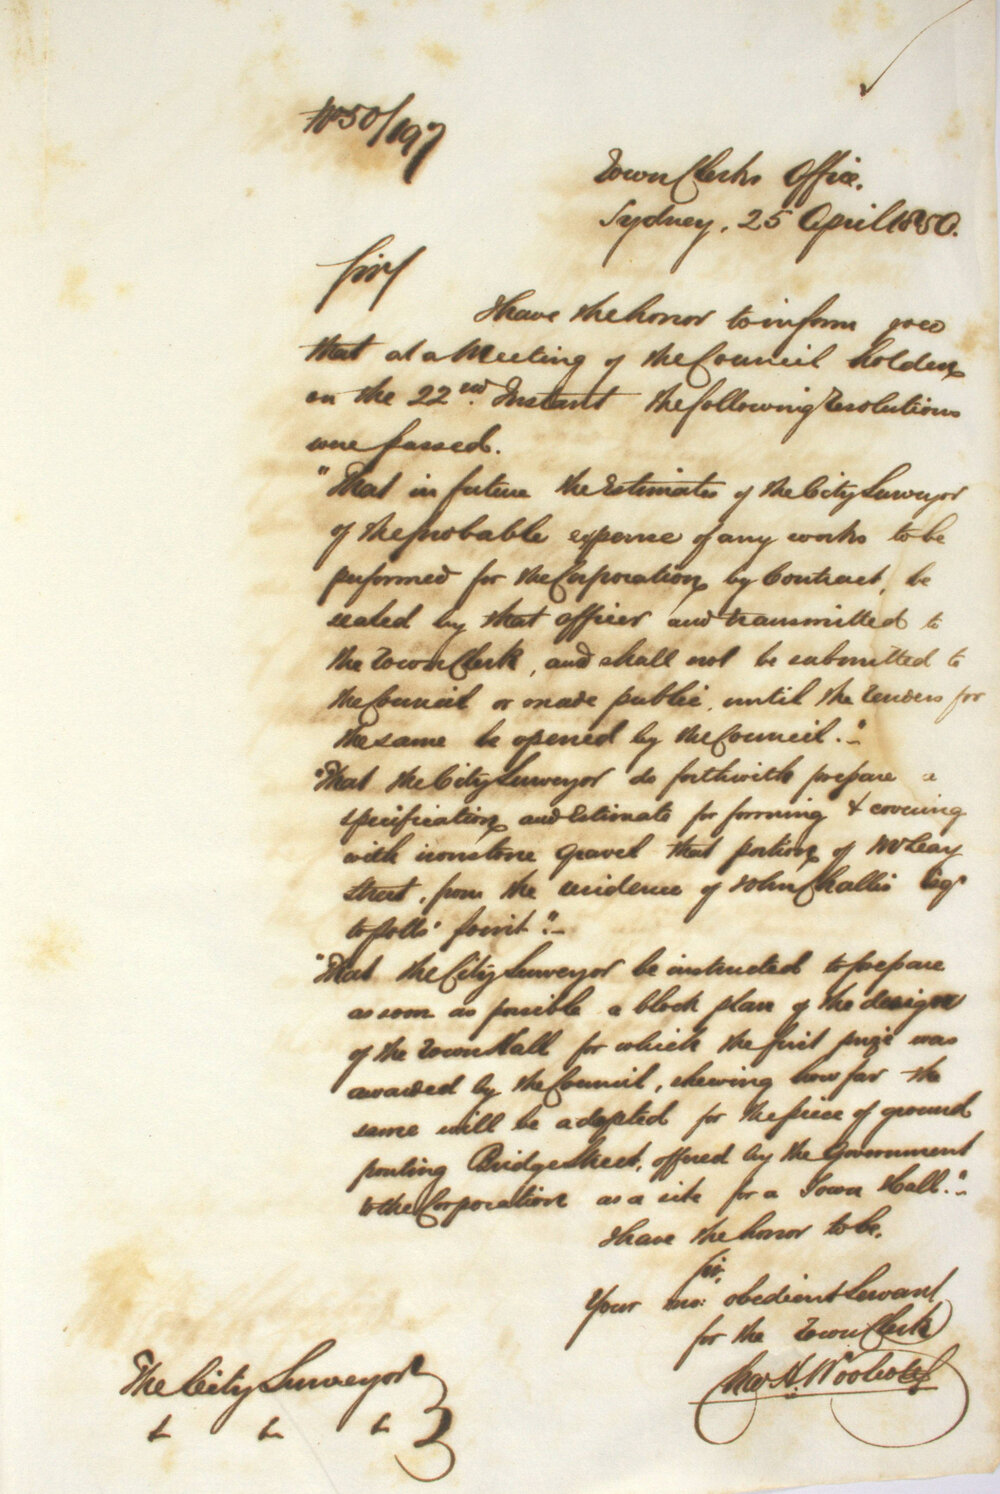 No 50/197
Town Clerks Office.
Sydney, 25 April 1850.
Sir/
I have the honor to inform you
that at a Meeting of the Council holden
on the 22nd. Instant the following Resolutions
were passed.
"That in future the Estimates of the City Surveyor
of the probable expense of any works to be
performed for the Corporation by Contract, be
sealed by that officer and transmitted to
the Town Clerk, and shall not be submitted to
the Council or made public, until the Tenders for
the same be opened by the Council."-
"That the City Surveyor do forthwith prepare a
specification and Estimate for forming & covering
with ironstone gravel that portion of McLeay
Street, from the residence of John Challis Esqr
to Potts' Point".-
"That the City Surveyor be instructed to prepare
as soon as possible a block plan of the design
of the Town Hall for which the first prize was
awarded by the Council, shewing how far the
same will be adapted for the piece of ground
fronting Bridge Street, offered by the Government
to the Corporation as a site for a Town Hall."-
I have the honor to be,
Sir,
Your mo: obedient Servant
for the Town Clerk
A. Woolcott
The City Surveyor
& & &